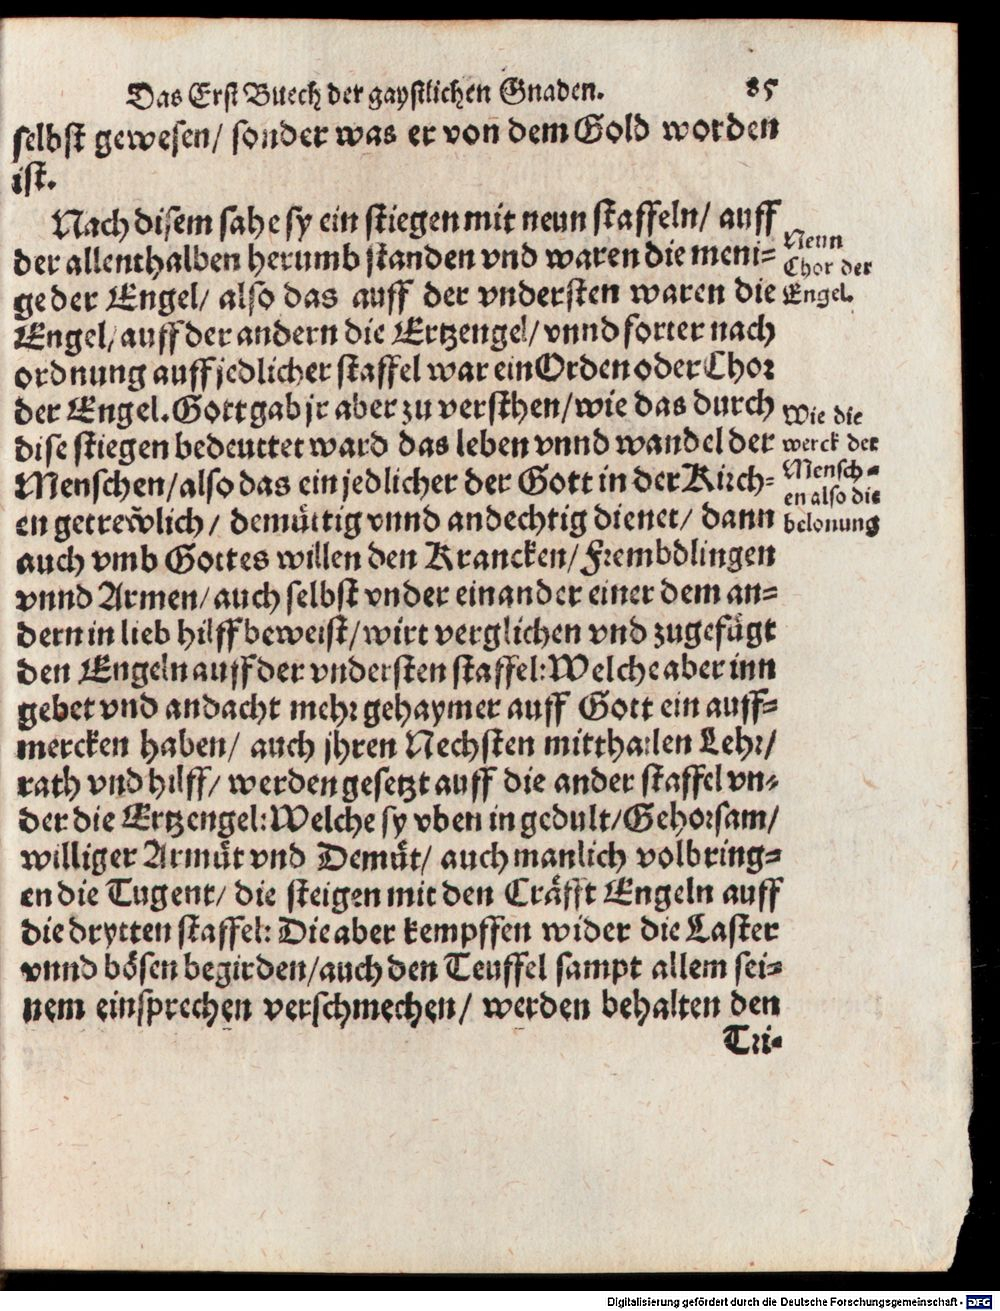 Das Erst Buech der gaystlichen Gnaden. 85
selbst gewesen/ sonder was er von dem Gold worden
ist.
Nach disem sahe sy ein stiegen mit neun staffeln/ auff
der allenthalben herumb standen vnd waren die meni-
ge der Engel/ also das auff der vndersten waren die
Engel/ auff der andern die Ertzengel/ vnnd forter nach
ordnung auff jedlicher staffel war ein Orden oder Chor
der Engel. Gott gab jr aber zu versthen/ wie das durch
dise stiegen bedeuttet ward das leben vnnd wandel der
Menschen/ also das ein jedlicher der Gott in der Kirch-
en getrewlich/ demüttig vnnd andechtig dienet/ dann
auch vmb Gottes willen den Krancken/ Frembdlingen
vnnd Armen/ auch selbst vnder einander einer dem an-
dern in lieb hilff beweist/ wirt verglichen vnd zugefügt
den Engeln auff der vndersten staffel: Welche aber inn
gebet vnd andacht mehr gehaymer auff Gott ein auff-
mercken haben/ auch jhren Nechsten mitthailen Lehr/
rath vnd hilff/ werden gesetzt auff die ander staffel vn-
der die Ertzengel: Welche sy vben in gedult/ Gehorsam/
williger Armüt vnd Demüt/ auch manlich volbring-
en die Tugent/ die steigen mit den Cräfft Engeln auff
die drytten staffel: Die aber kempffen wider die Laster
vnnd bösen begirden/ auch den Teuffel sampt allem sei-
nem einsprechen verschmechen/ werden behalten den
Tri-
Neun
Chor der
Engel.
Wie die
werck der
Mensch-
en also die
belonung
Digitalisierung gefördert durch die Deutsche Forschungsgemeinschaft - DFG